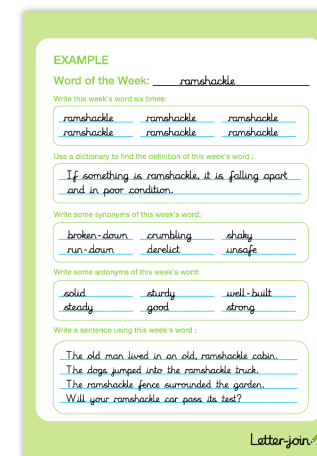 EXAMPLE
Word of the Week: ramshackle
Write this week's word six times:
ramshackle ramshackle ramshackle
ramshackle ramshackle ramshackle
Use a dictionary to find the definition of this week's word :
If something is ramshackle, it is falling apart
and in poor condition.
Write some synonyms of this week's word:
broken-down crumbling shaky
run-down derelict unsafe
Write some antonyms of this week's word:
solid sturdy well-built
steady good strong
Write a sentence using this week's word :
The old man lived in an old, ramshackle cabin.
The dogs jumped into the ramshackle truck.
The ramshackle fence surrounded the garden.
Will your ramshackle car pass its test?
Letter-join